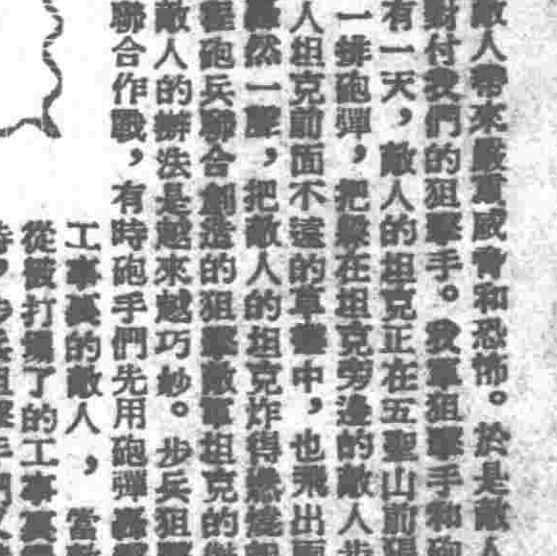 敵人帶來嚴重威脅和恐怖。於是敵人
對付我們的狙擊手。我軍狙擊手和砲
有一天，敵人的坦克正在五聖山前
一排砲彈，把躲在坦克旁邊的敵人步
人坦克前面不遠的草叢中，也飛出
轟然一聲，把敵人的坦克炸得燃燒起
程砲兵聯合創造的狙擊敵軍坦克的
敵人的辦法是越來越巧妙。步兵狙
聯合作戰，有時砲手們先用砲彈轟
工事裏的敵人，當
從被打塌了的工事裏